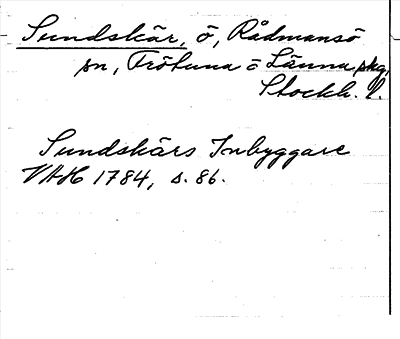 Sundskär, ö, Rådmansö
sn, Frötuna o Länna skg,
Stockh. l.
Sundskärs Inbyggare
VAH 1784, s. 86.